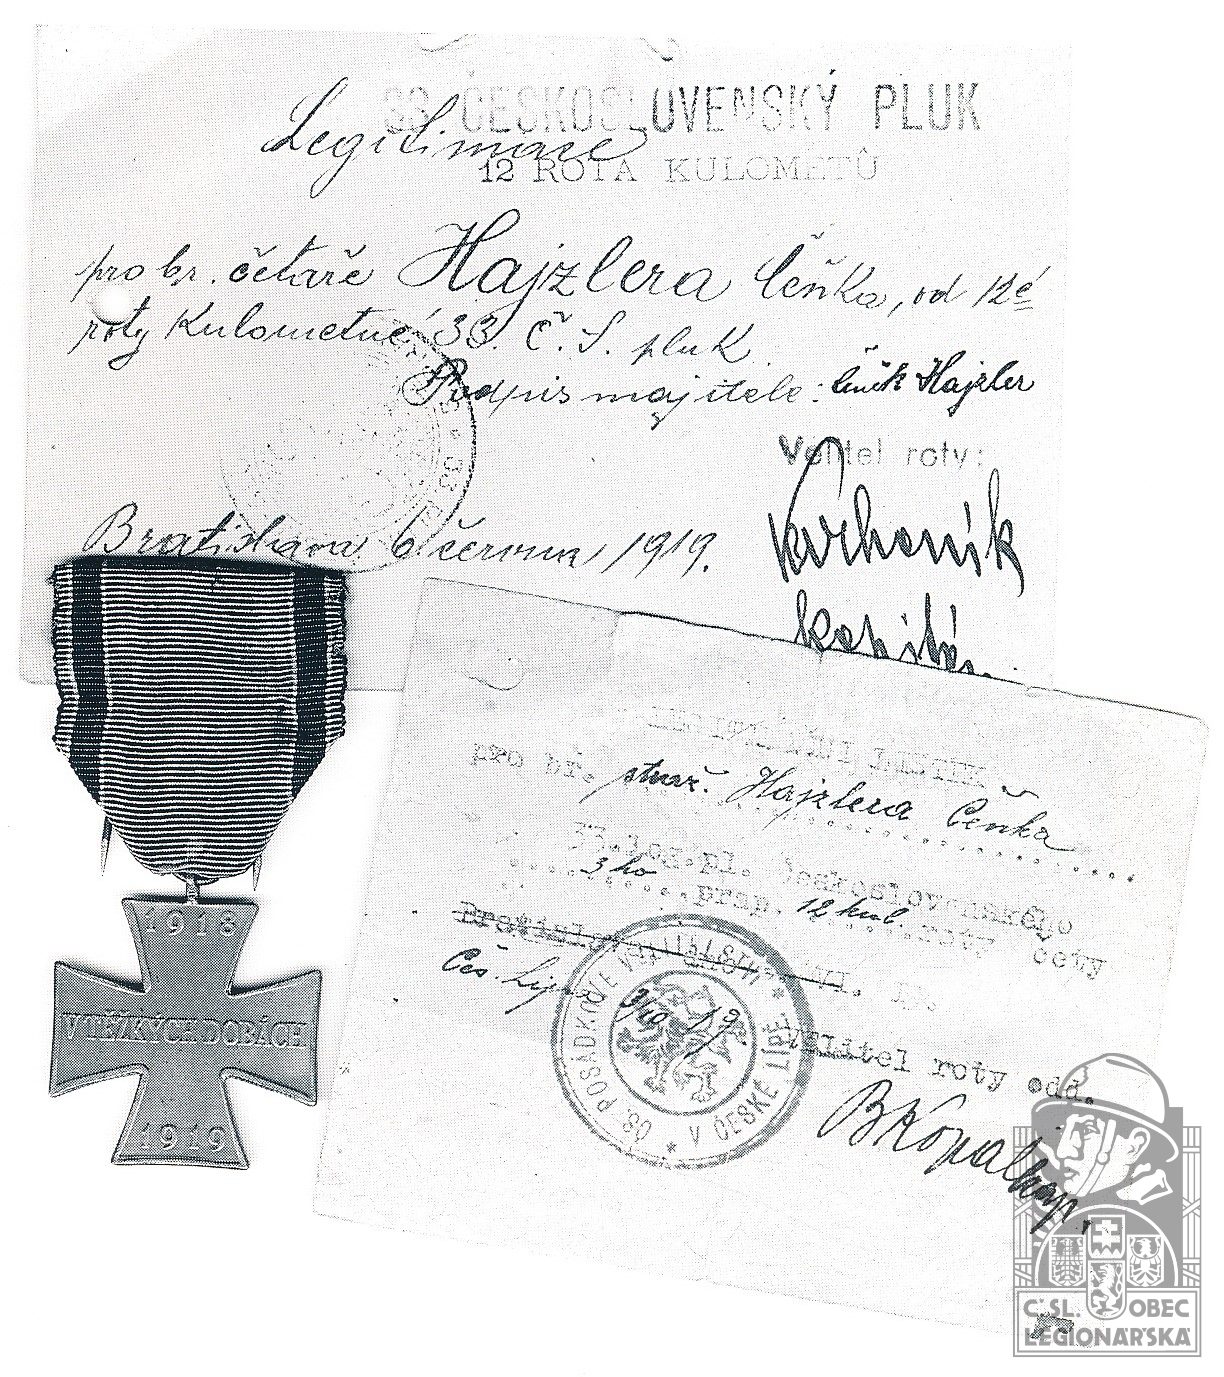 33 ČESKOSLOVENSKÝ PLUK
Legitimace
12 ROTA KULOMETŮ
pro br. četaře Hajzlera Čeňka, od 12é
roty Kulometné 33. Č. S. pluk
Podpis majitele: Čeněk Hajzler
Velitel roty:
Bratislava 6 června 1919.
kapitán
1918
V TĚŽKÝCH DOBÁCH
1919
LISTEK
pro br. Hajzlera Čeňka
pl. československého
3 ho prap. 12 kul. roty čety
Čes. Lípa 3/10 19
Velitel roty odd.
POSÁDKOVÉ VELITELSTVÍ * V ČESKÉ LÍPĚ *
Č.SL. OBEC
LEGIONÁŘSKÁ